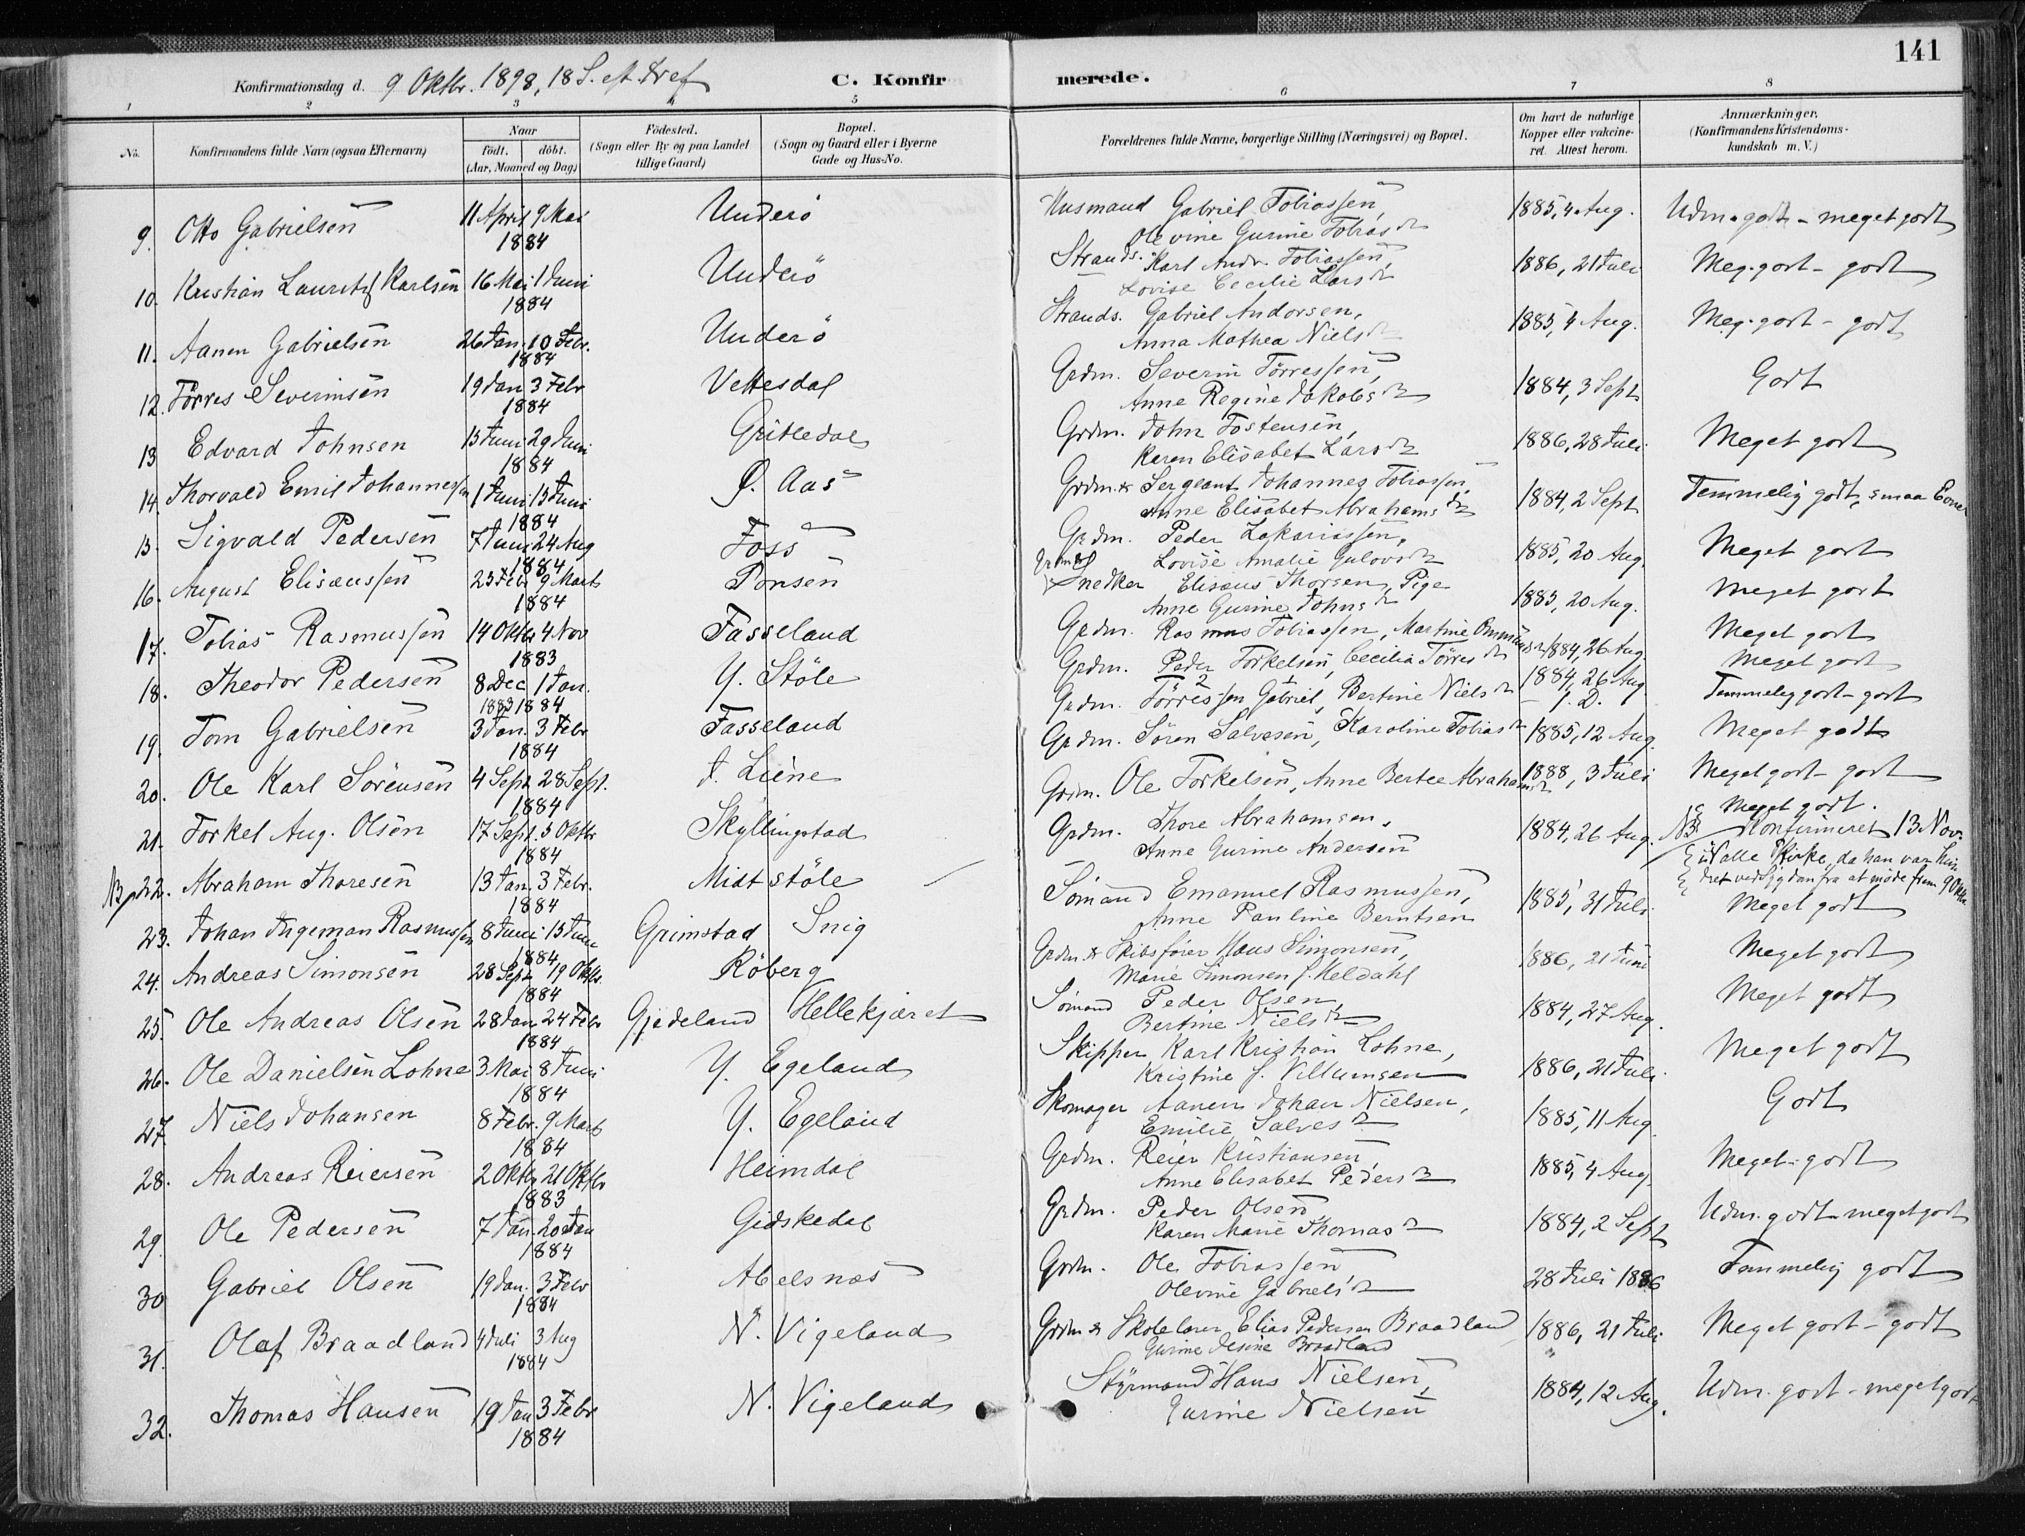 141
Konfirmationsdag d. 9 Oktbr. 1898, 18 S. eft. Tref
C. Konfirmerede.
1 2 3 4 5 6 7 8
No. Konfirmandens fulde Navn (ogsaa Efternavn) Naar født. døbt. (Aar, Maaned og Dag) Fødested. (Sogn eller By og paa Landet tillige Gaard) Bopæl. (Sogn og Gaard eller i Byerne Gade og Hus-No. Forældrenes fulde Navne, borgerlige Stilling (Næringsvei) og Bopæl. Om havt de naturlige Kopper eller vakcineret. Attest herom. Anmærkninger. (Konfirmandens Kristendomskundskab m. V.)
9. Otto Gabrielsen 11 April 9 Mai 1884 Underö Husmand Gabriel Tobiassen, Olevine Gurine Tobiasd. 1885, 4 Aug. Udm. godt - meget godt
10. Kristian Lauritz Karlsen 16 Mai 1 Juni 1884 Underö Strands. Karl Andr. Tobiassen, Lovise Cecilie Larsd. 1886, 21 Juli Meg. godt - godt
11. Aanen Gabrielsen 26 Jan. 10 Febr. 1884 Underö Strands. Gabriel Andorsen, Anna Mathea Nielsd. 1885, 4 Aug. Meg. godt - godt
12. Törres Severinsen 19 Jan 3 Febr 1884 Vettesdal Grdm. Severin Törressen, Anne Regine Jakobsd. 1884, 3 Sept Godt
13 Edvard Johnsen 15 Juni 29 Juni 1884 Gritledal Grdm. John Tostensen, Karen Elisabet Larsd. 1886, 28 Juli Meget godt
14. Thorvald Emil Johannessen 1 Juni 15 Juni 1884 Ö. Aas Grdm. & Sergeant Johannes Tobiassen, Anne Elisabet Abrahamsd. 1884, 2 Sept Temmelig godt, smaa Evner
15. Sigvald Pedersen 7 Juni 24 Aug 1884 Foss Grdm. Peder Zakariassen, Lovise Amalie Gulovsd. 1885, 20 Aug. Meget godt
16. August Elisæussen 23 Febr 9 Marts 1884 Ponsen Grdm & Snedker Elisæus Thorsen, Pige Anne Gurine Johnsd. 1885, 20 Aug. Meget godt
17. Tobias Rasmussen 14 Oktbr 4 Nov 1883 Fasseland Grdm. Rasmus Tobiassen, Martine 1884, 26 Aug Meget godt
18. Theodor Pedersen 8 Dec 1 Jan. 1883 1884 Y. Stöle Grdm. Peder Torkelsen, Cecilia Törresd. 1884, 26 Aug Meget godt
19. Tom Gabrielsen 3 Jan. 3 Febr 1884 Fasseland Grdm. Törressen Gabriel, Bertine Nielsd. - S. D. Temmelig godt - godt
20. Ole Karl Sörensen 4 Sept 28 Sept. 1884 I. Liene Grdm. Sören Salvesen, Karoline Tobiasd. 1885, 12 Aug. Meget godt
21. Torkel Aug. Olsen 17 Sept. 5 Oktbr 1884 Skyllingstad Grdm. Ole Torkelsen, Anne Bertee Abrahamsd. 1888, 3 Juli Meget godt - godt
NB 22. Abraham Thoresen 13 Jan. 3 Febr. 1884 Midtstöle Grdm. Thore Abrahamsen, Anne Gurine Andersen 1884, 26 Aug. Meget godt. NB Konfirmeret 13 Nov. i Valle Kirke, da han var hindret ved Sygdom fra at møde frem 9 Oktbr
23. Johan Ingeman Rasmussen 8 Juni 15 Juni 1884 Grimstad Snig Sömand Emanuel Rasmussen, Anne Pauline Berntsen 1885, 31 Juli Meget godt
24. Andreas Simonsen 28 Sept 19 Oktbr. 1884 Röberg Grdm & Skibsförer Hans Simonsen, Marie Simonsen f. Meldahl 1886, 21 Juni Meget godt
25. Ole Andreas Olsen 28 Jan 24 Febr 1884 Gjedeland Hellekjæret Sömand Peder Olsen, Bertine Nielsd. 1884, 27 Aug. Meget godt
26. Ole Danielsen Lohne 3 Mai 8 Juni 1884 Y. Egeland Skipper Karl Kristian Lohne, Kristine f. Villumsen 1886, 21 Juli Meget godt
27. Niels Johansen 8 Febr. 9 Marts 1884 Y. Egeland Skomager Aanen Johan Nielsen, Emilie Salvesd. 1885, 11 Aug. Godt
28. Andreas Reiersen 2 Oktbr 21 Oktbr 1883 Heimdal Grdm. Reier Kristiansen, Anne Elisabet Pedersd. 1885, 4 Aug. Meget godt
29. Ole Pedersen 7 Jan. 20 Jan 1884 Gidskedal Grdm. Peder Olsen, Karen Marie Thomasd. 1884, 2 Sept Udm. godt - meget godt
30 Gabriel Olsen 19 Jan. 3 Febr 1884 Abelsnæs Grdm. Ole Tobiassen Olevine Gabrielsd. 28 Juli 1886 Temmelig godt
31. Olaf Braadland 4 Juli 3 Aug 1884 N. Vigeland Grdm & Skolelærer Elias Pedersen Braadland Gurine Braadland 1886, 21 Juli Meget godt - godt
32. Thomas Hansen 19 Jan 3 Febr 1884 N. Vigeland Styrmand Hans Nielsen, Gurine Nielsen 1884, 12 Aug. Udm. godt - meget godt